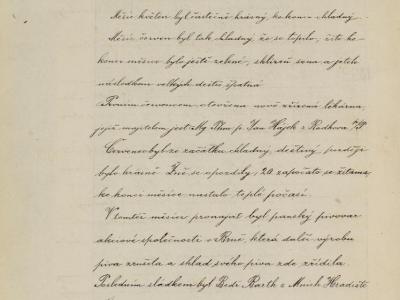 Měsíc květen byl částečně krásný, ke konci chladný.
Měsíc červen byl tak chladný, že se teplo, žito ko-
konci měsíce bylo ještě zelené, sklizeň sena a jetele
následkem velkých dešťů špatná
Prvním červencem otevřena nově zřízená lékárna,
jejíž majitelem jest Mg Phm p. Jan Hájek z Radkova
Červenec byl ze začátku chladný, deštivý, později
bylo krásně. Žně se opozdily, 20 započato se žitem,
ke konci měsíce nastalo teplé počasí.
V tomtéž měsíci pronajat byl panský pivovar
akciové společnosti v Brně, která další výrobu
piva zrušila a sklad svého piva zde zřídila.
Posledním sládkem byl Bedř. Barth z Mnich. Hradiště